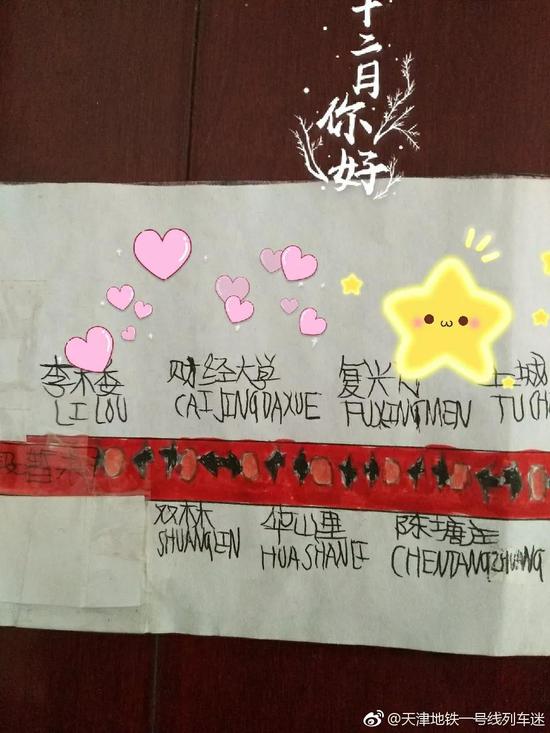 十二月
你好
李木娄
LI LOU
财经大学
CAIJINGDAXUE
复兴门
FUXINGMEN
土城
TUCH
双林
SHUANGLIN
华山里
HUASHANLI
陈塘庄
CHENTANGZHUANG
@天津地铁一号线列车迷